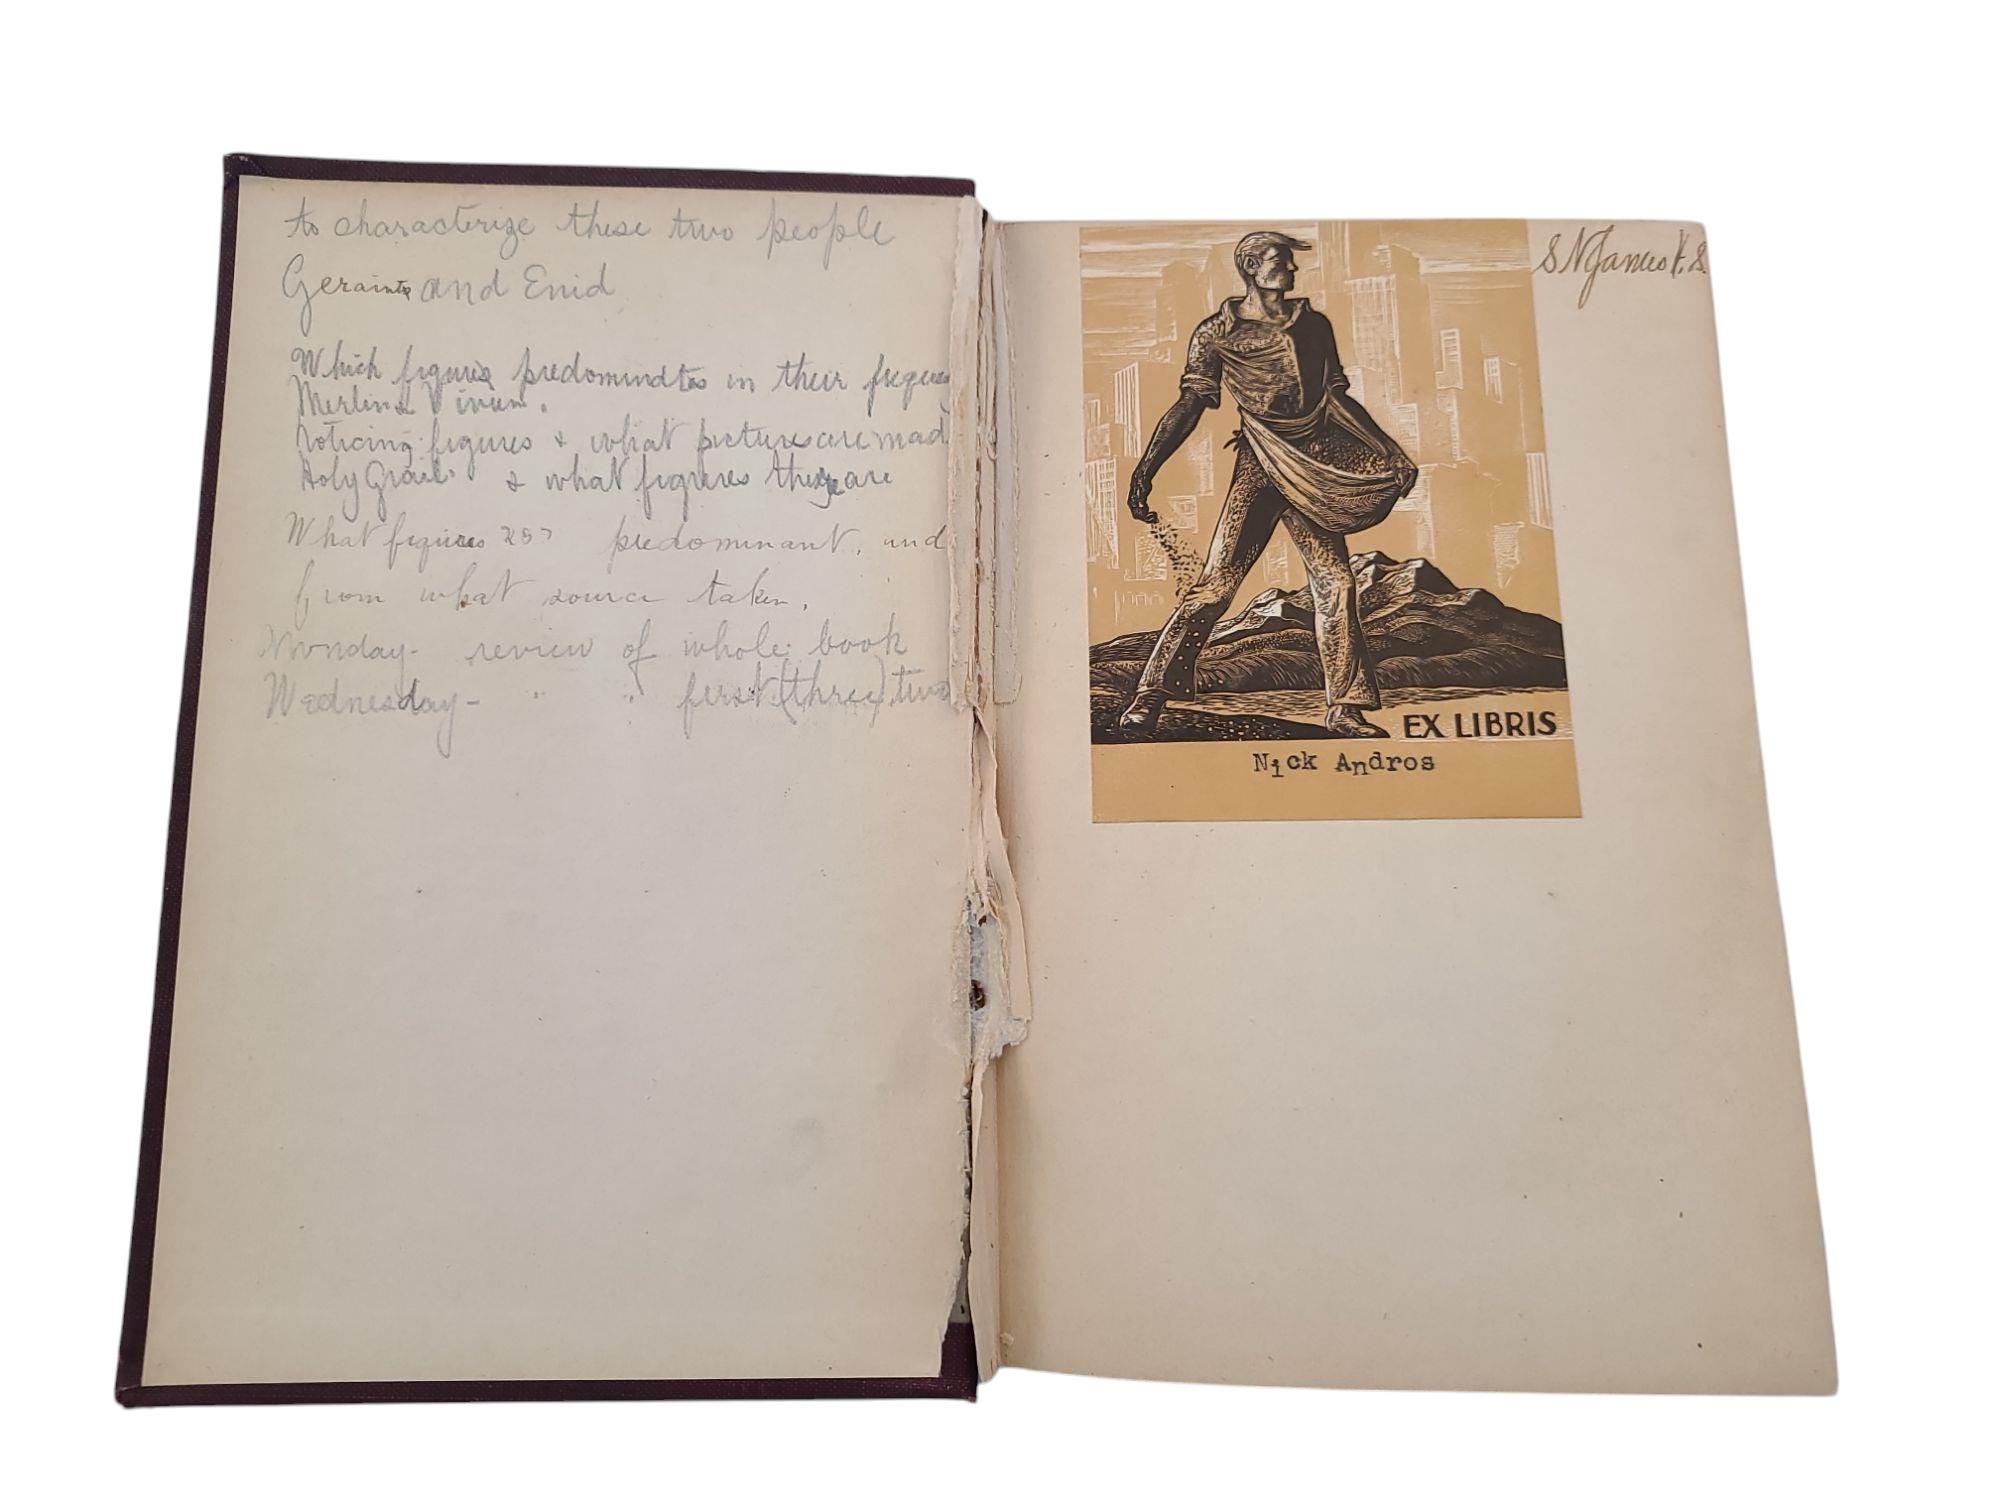 to characterize these two people
Geraint and Enid
Which figures predominates in their figures
Merlin & Vivien.
noticing figures & what pictures are mad
Holy Grail & what figures they are
What figures predominant, and
from what source taken,
Monday- review of whole book
Wednesday- " " first (three) two
EX LIBRIS
Nick Andros
S N James